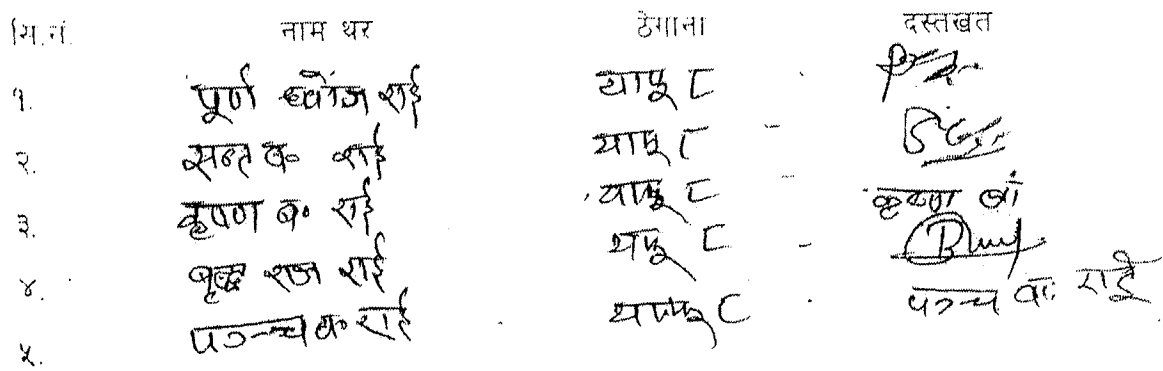 सि.नं. नाम थर ठेगाना दस्तखत
१. पूर्ण ध्वोज राई यापू ८
२. सन्त ब. राई यापू ८
३. कृष्ण ब. राई यापू ८ कृष्ण बा
४. बृद्ध राज राई यपू ८
५. पञ्च ब. राई यापू ८ पञ्च बाः राई